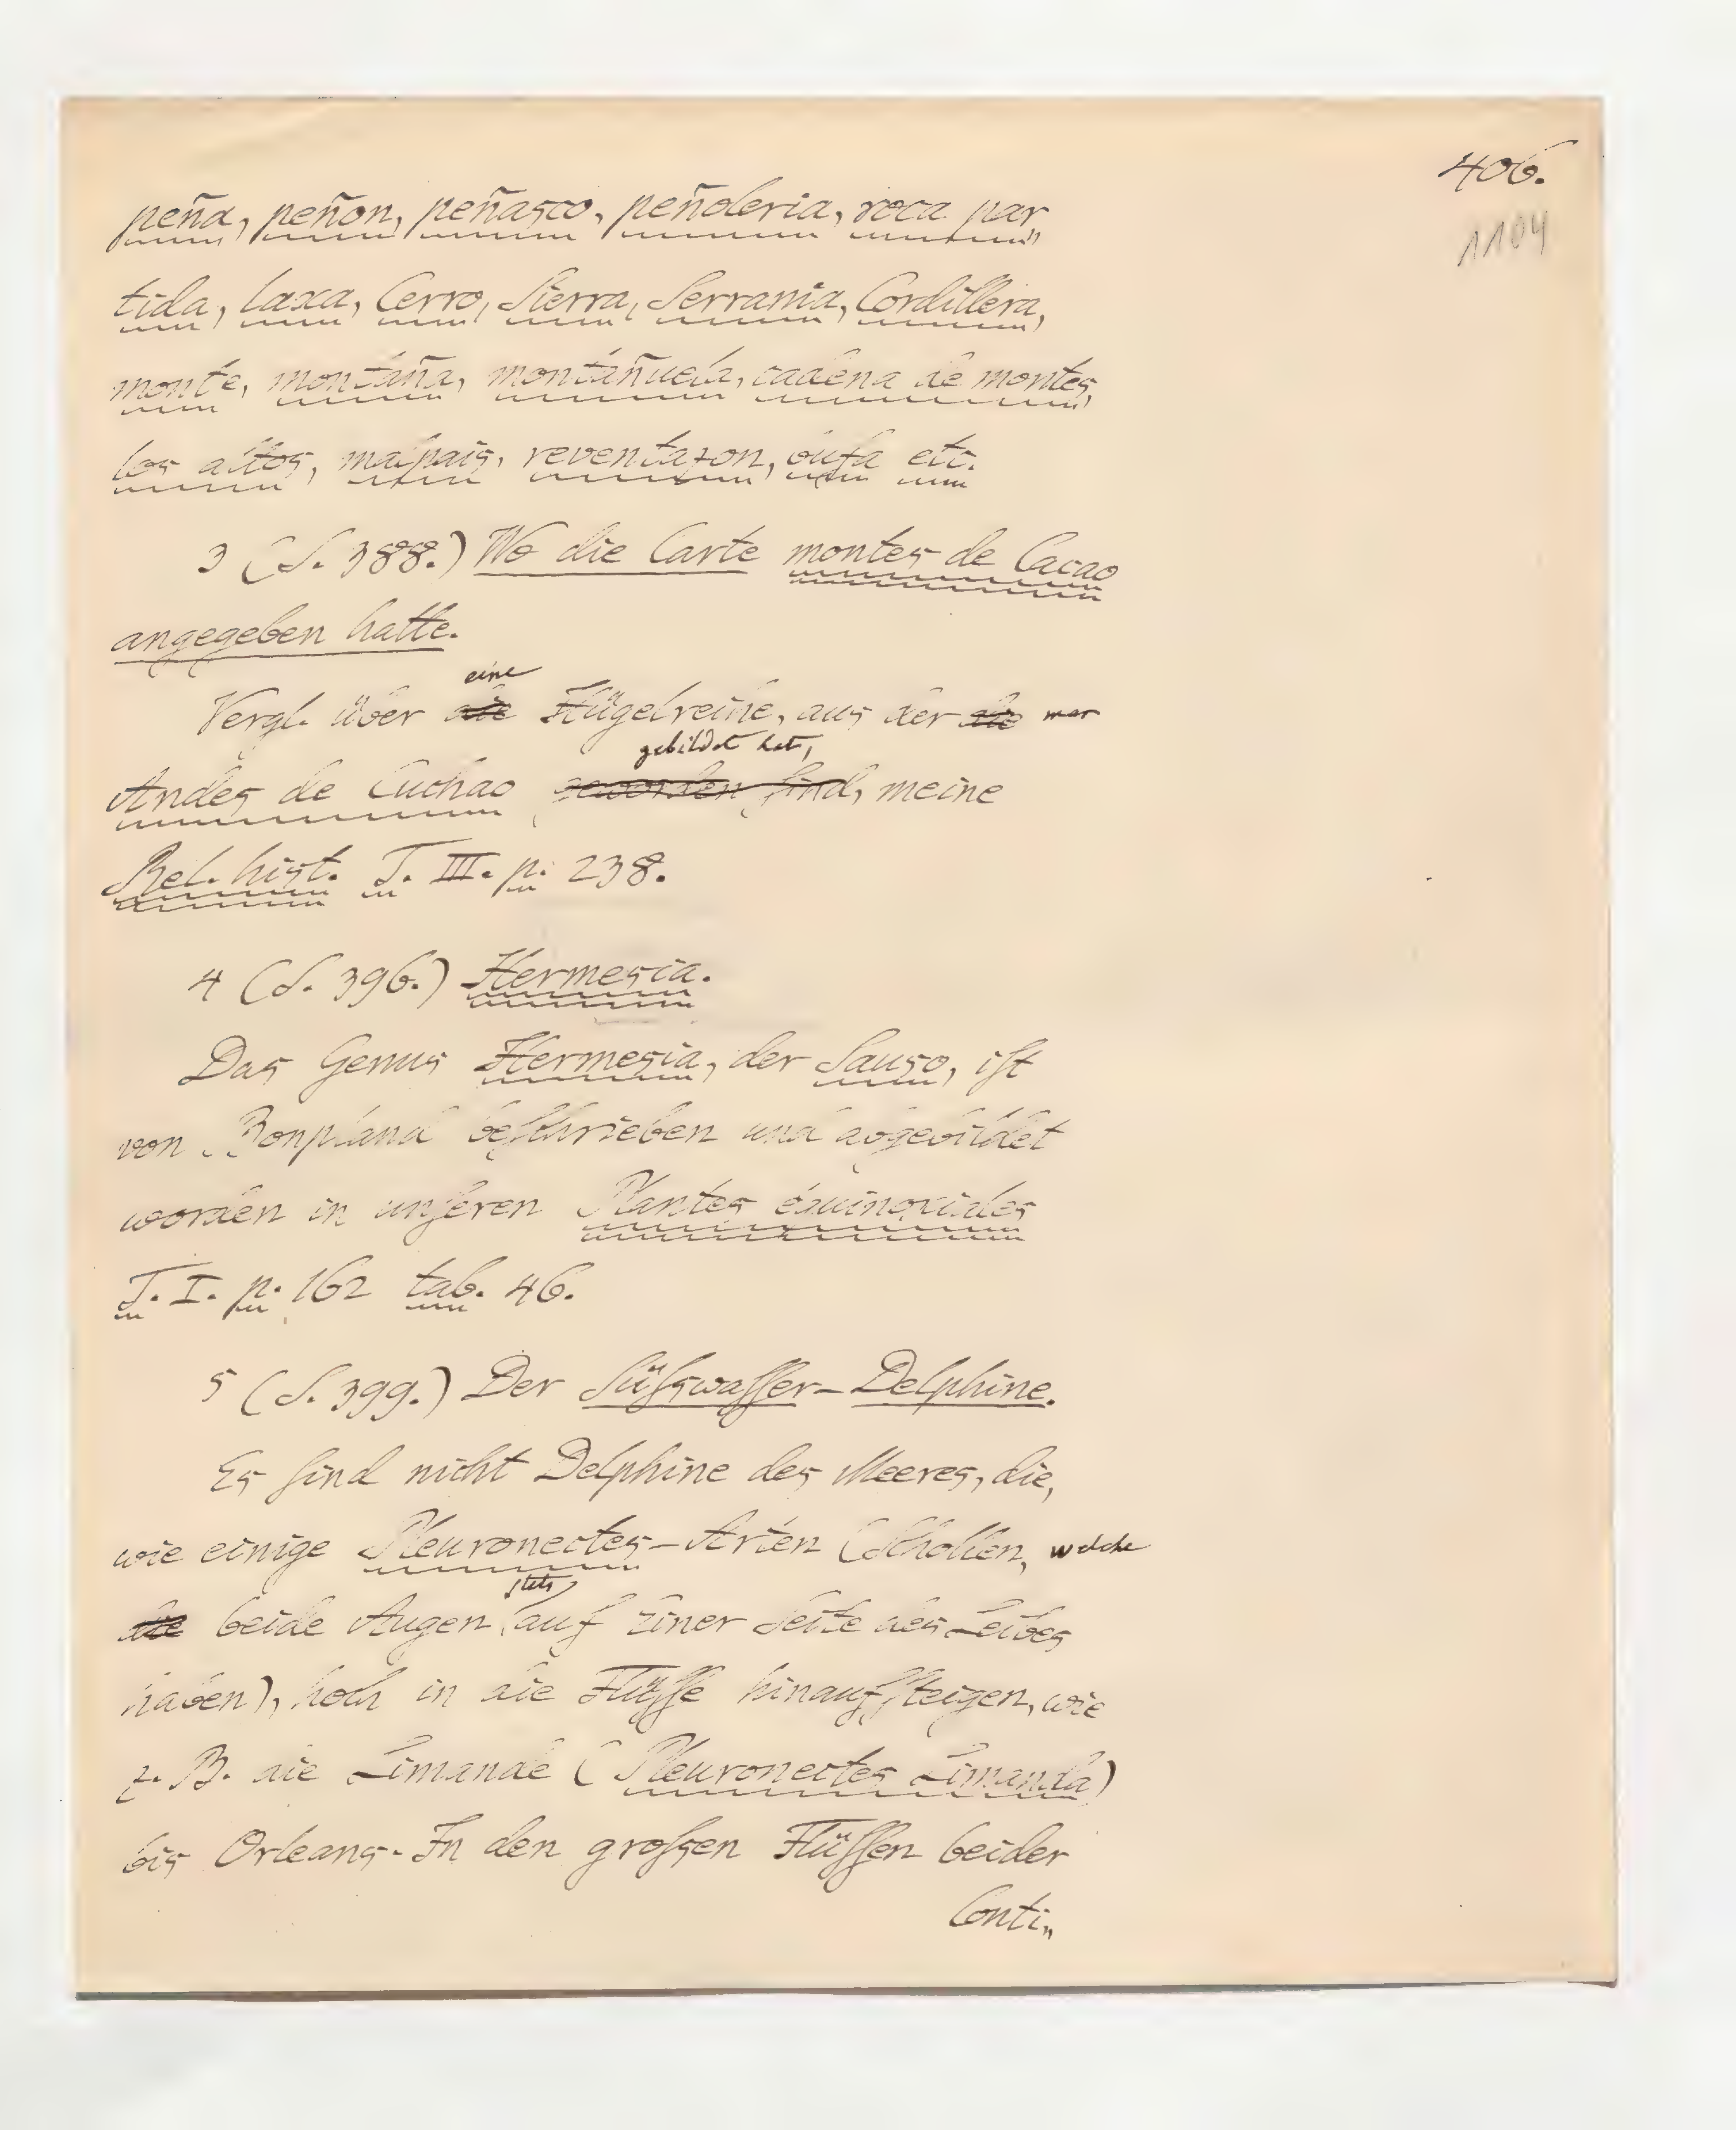 406.
1104
peña, peñon, peñasco, peñoleria, roca par„
tida, laxa, Cerro, Sierra, Serrania, Cordillera,
monte, montaña, montañuela, cadena de montes,
los altos, malpais, reventazon, bufa etc.
3 (S. 388.) Wo die Carte montes de Cacao
angegeben hatte.
Vergl. über die eine Hügelreihe, aus der die man
Andes de Cuchao geworden sind, gebildet hat, meine
Rel. hist. T. III. p. 238.
4 (S. 396.) Hermesia.
Das Genus Hermesia, der Sauso, iſt
von Bonpland beſchrieben und abgebildet
worden in unſeren Plantes équinoxiales
T. I. p. 162 tab. 46.
5 (S. 399.) Der Süſswaſſer-Delphine.
Es ſind nicht Delphine des Meeres, die,
wie einige Pleuronectes-Arten (Schollen, welche
die beide Augen ſtets auf Einer Seite des Leibes
haben), hoch in die Flüſſe hinaufſteigen, wie
z. B. die Limande (Pleuronectes Limanda)
bis Orleans. In den groſsen Flüſſen beider
Conti„